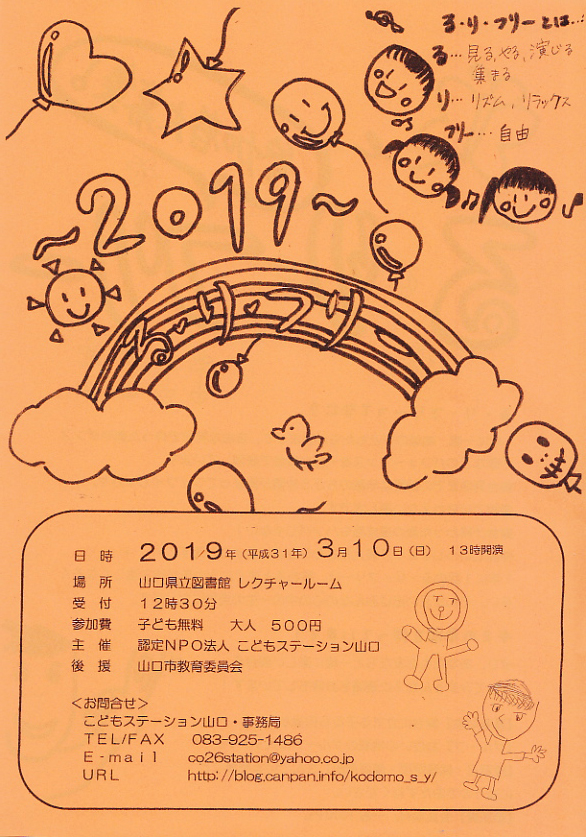 る・り・フリーとは…
る…見る、やる、演じる
集まる
リ…リズム、リラックス
フリー…自由
～2019～
る・リ・フリー
日時 2019年（平成31年）3月10日（日） 13時開演
場所 山口県立図書館 レクチャールーム
受付 12時30分
参加費 子ども無料 大人 500円
主催 認定NPO法人 こどもステーション山口
後援 山口市教育委員会
＜お問合せ＞
こどもステーション山口・事務局
TEL/FAX 083-925-1486
E-mail co26station@yahoo.co.jp
URL http://blog.canpan.info/kodomo_s_y/